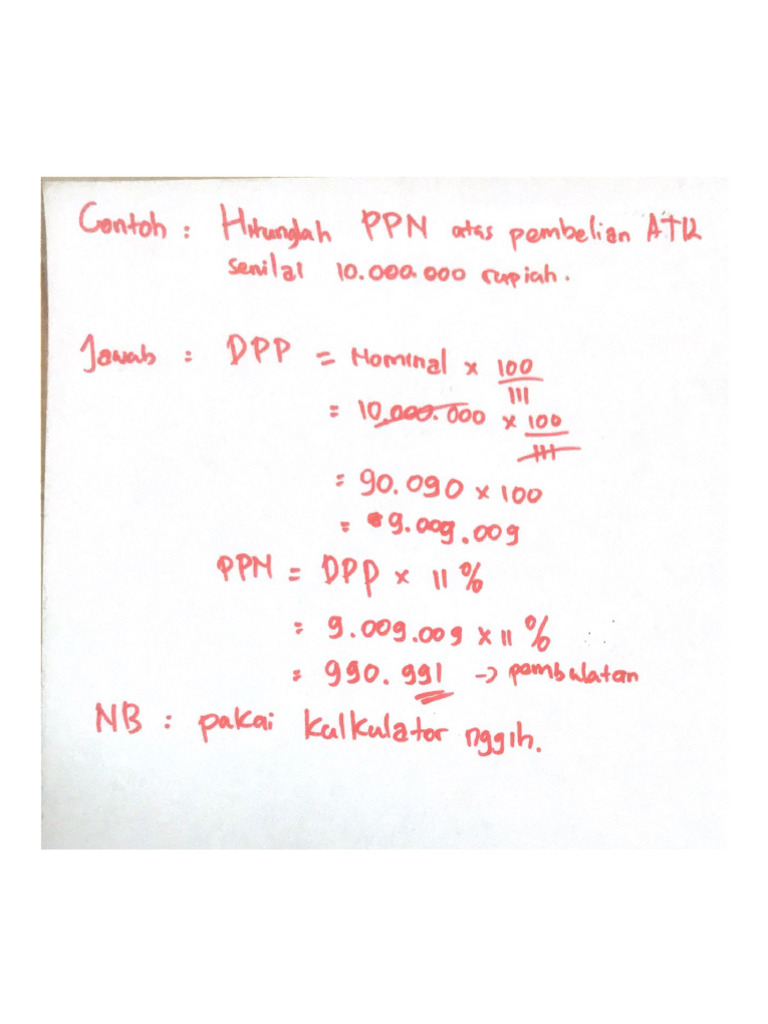 Contoh : Hitunglah PPN atas pembelian ATK
senilai 10.000.000 rupiah.
Jawab : DPP = Nominal x 100/111
= 10.000.000 x 100/111
= 90.090 x 100
= 9.009.009
PPN = DPP x 11%
= 9.009.009 x 11%
= 990.991 -> pembulatan
NB : pakai kalkulator nggih.